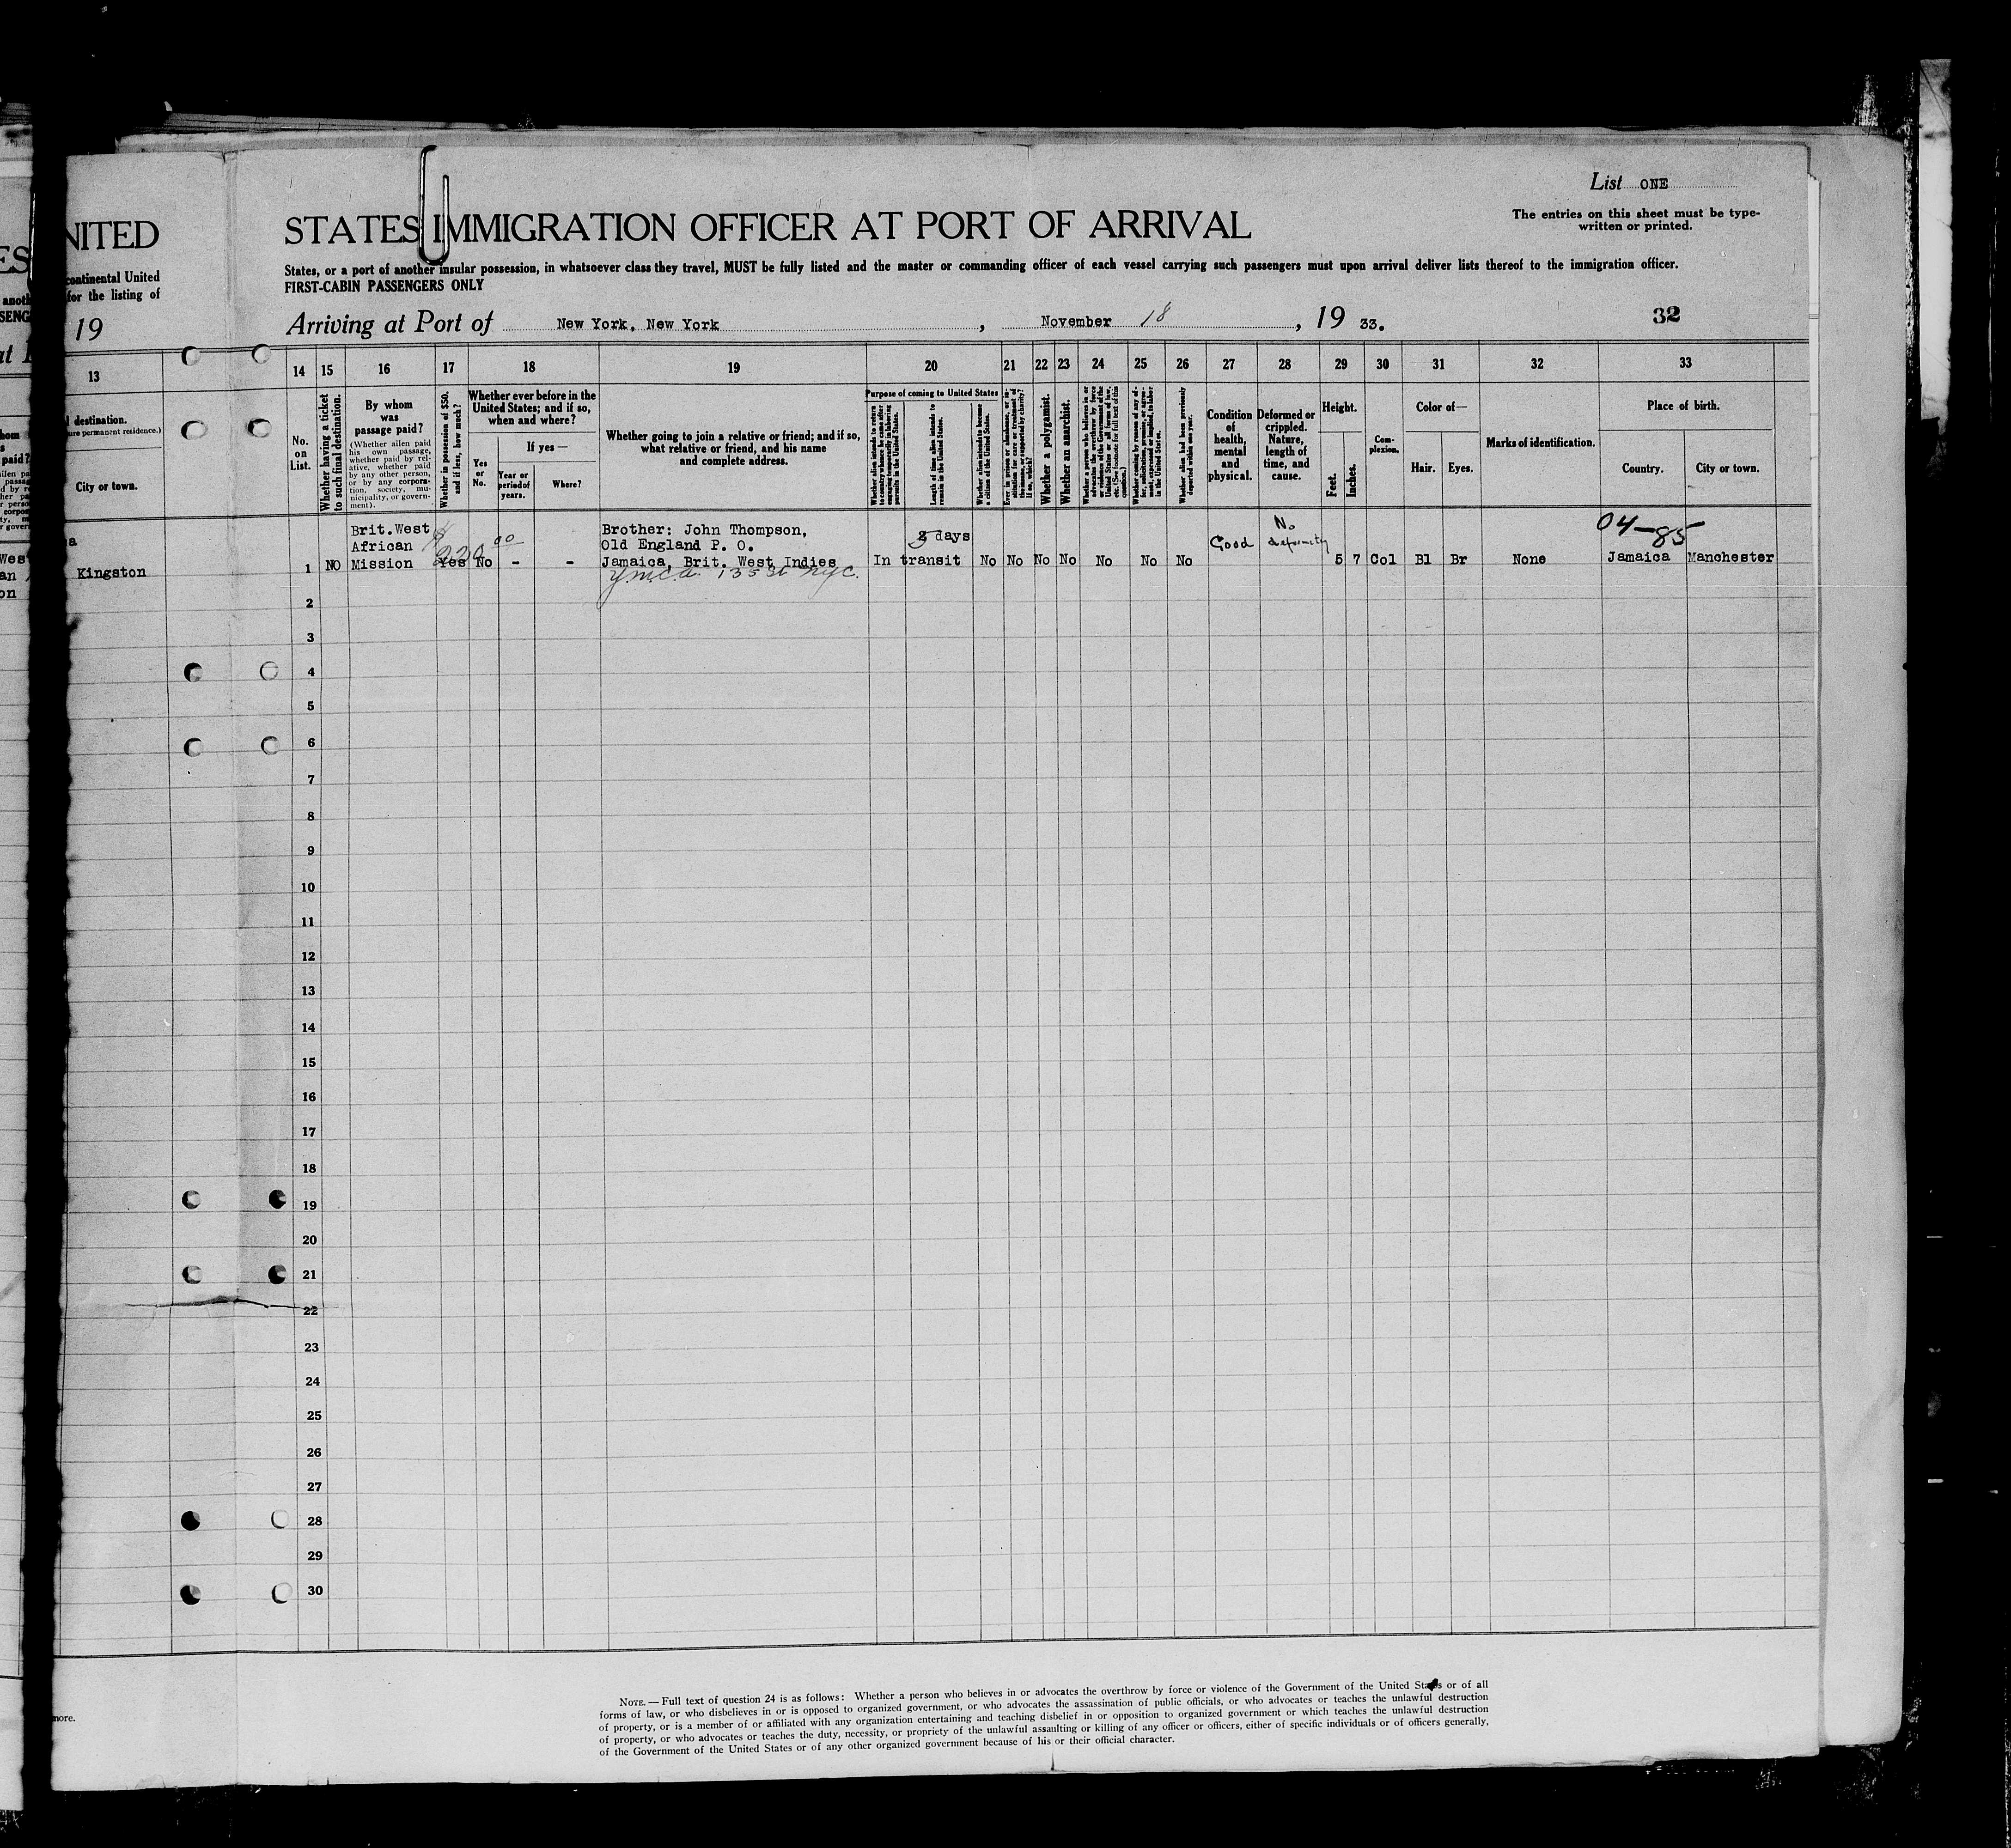 List ONE
The entries on this sheet must be type-
written or printed.
NITED
STATES IMMIGRATION OFFICER AT PORT OF ARRIVAL
continental United
for the listing of
States, or a port of another insular possession, in whatsoever class they travel, MUST be fully listed and the master or commanding officer of each vessel carrying such passengers must upon arrival deliver lists thereof to the immigration officer.
FIRST-CABIN PASSENGERS ONLY
19
Arriving at Port of New York, New York, November 18, 19 33.
32
13 14 15 16 17 18 19 20 21 22 23 24 25 26 27 28 29 30 31 32 33
destination.
ure permanent residence.)
City or town.
No.
on
List.
Whether having a ticket
to such final destination.
By whom
was
passage paid?
(Whether alien paid
his own passage,
whether paid by rel-
ative, whether paid
by any other person,
or by any corpora-
tion, society, mu-
nicipality, or govern-
ment).
Whether in possession of $50,
and if less, how much?
Whether ever before in the
United States; and if so,
when and where?
Yes
or
No.
If yes—
Year or
period of
years.
Where?
Whether going to join a relative or friend; and if so,
what relative or friend, and his name
and complete address.
Purpose of coming to United States
Whether alien intends to return
to country whence he came after
engaging temporarily in laboring
pursuits in the United States.
Length of time alien intends to
remain in the United States.
Whether alien intends to become
a citizen of the United States.
Ever in prison or almshouse, or in-
stitution for care or treatment of
the insane, or supported by charity?
If so, which?
Whether a polygamist.
Whether an anarchist.
Whether a person who believes in or
advocates the overthrow by force
or violence of the Government of the
United States or all forms of law,
etc. (See footnote for full text of this
question.)
Whether coming by reason of any of-
fer, solicitation, promise, or agree-
ment, expressed or implied, to labor
in the United States.
Whether alien had been previously
deported within one year.
Condition
of
health,
mental
and
physical.
Deformed or
crippled.
Nature,
length of
time, and
cause.
Height.
Feet.
Inches.
Com-
plexion.
Color of—
Hair.
Eyes.
Marks of identification.
Place of birth.
Country.
City or town.
Kingston
1
NO
Brit.West
African
Mission
220 00
Yes
No
-
-
Brother: John Thompson,
Old England P. O.
Jamaica, Brit. West Indies
Ymca 135 St NYC.
3 days
In transit
No
No
No
No
No
No
No
Good
No
deformity
5
7
Col
Bl
Br
None
04-85
Jamaica
Manchester
2
3
4
5
6
7
8
9
10
11
12
13
14
15
16
17
18
19
20
21
22
23
24
25
26
27
28
29
30
more.
NOTE.—Full text of question 24 is as follows: Whether a person who believes in or advocates the overthrow by force or violence of the Government of the United States or of all
forms of law, or who disbelieves in or is opposed to organized government, or who advocates the assassination of public officials, or who advocates or teaches the unlawful destruction
of property, or is a member of or affiliated with any organization entertaining and teaching disbelief in or opposition to organized government or which teaches the unlawful destruction
of property, or who advocates or teaches the duty, necessity, or propriety of the unlawful assaulting or killing of any officer or officers, either of specific individuals or of officers generally,
of the Government of the United States or of any other organized government because of his or their official character.